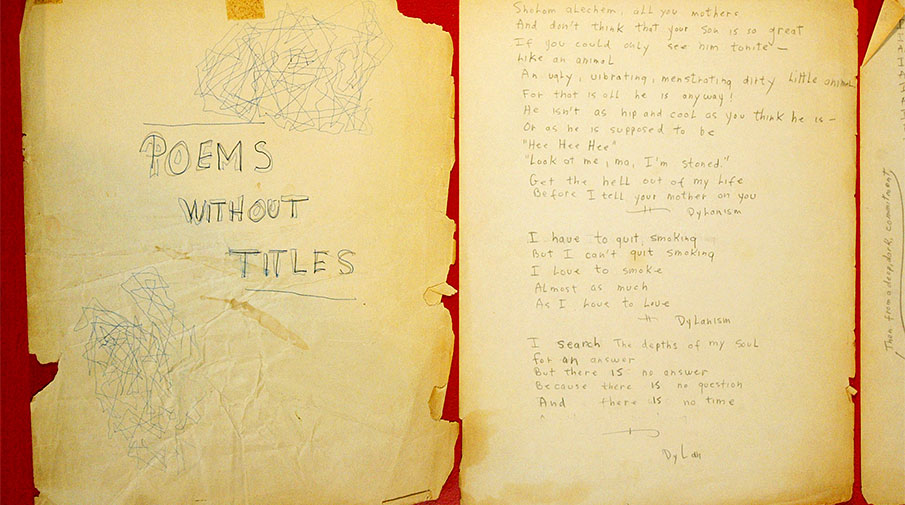 POEMS
WITHOUT
TITLES
Sholom alechem, all you mothers
And don't think that your son is so great
If you could only see him tonite —
Like an animal
An ugly, vibrating, menstrating dirty little animal
For that is all he is anyway!
He isn't as hip and cool as you think he is —
Or as he is supposed to be
"Hee Hee Hee"
"Look at me, ma, I'm stoned."
Get the hell out of my life
Before I tell your mother on you
Dylanism
I have to quit smoking
But I can't quit smoking
I love to smoke
Almost as much
As I love to love
Dylanism
I search The depths of my soul
for an answer
But there IS no answer
Because there IS no question
And there IS no time
Dylan
Then from a deep, dark, commitment